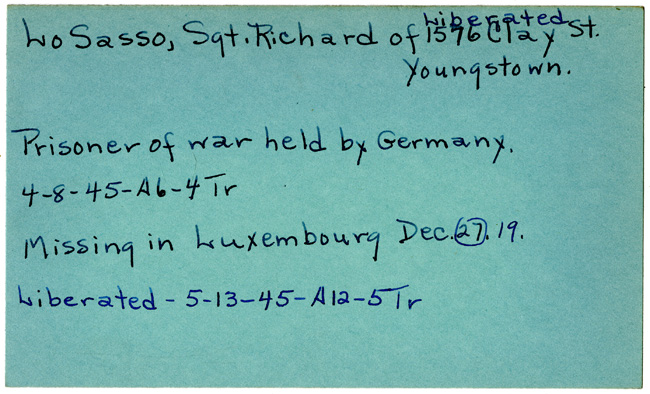 Liberated
LoSasso, Sgt. Richard of 1576 Clay St.
Youngstown.
Prisoner of war held by Germany.
4-8-45-A6-4 Tr
Missing in Luxembourg Dec. 27. 19.
Liberated - 5-13-45-A12-5 Tr